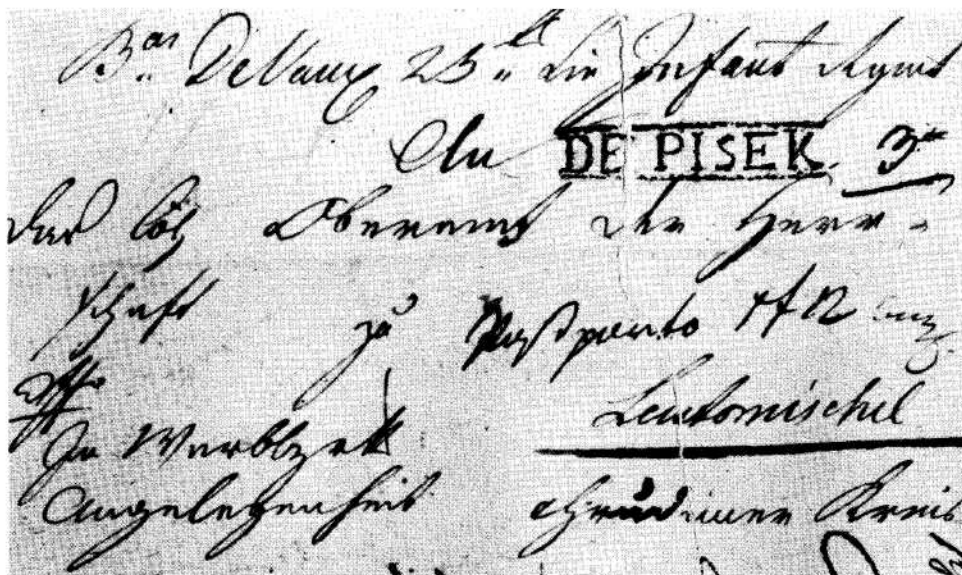 Bar De Vaux 25t Lin Infant Rgmt
An DE PISEK 3
Das löb Oberamt der Herr-
schaft zu Postporto
Leutomischel
In Werbbzrk
Angelegenheit Chrudimer Kreis